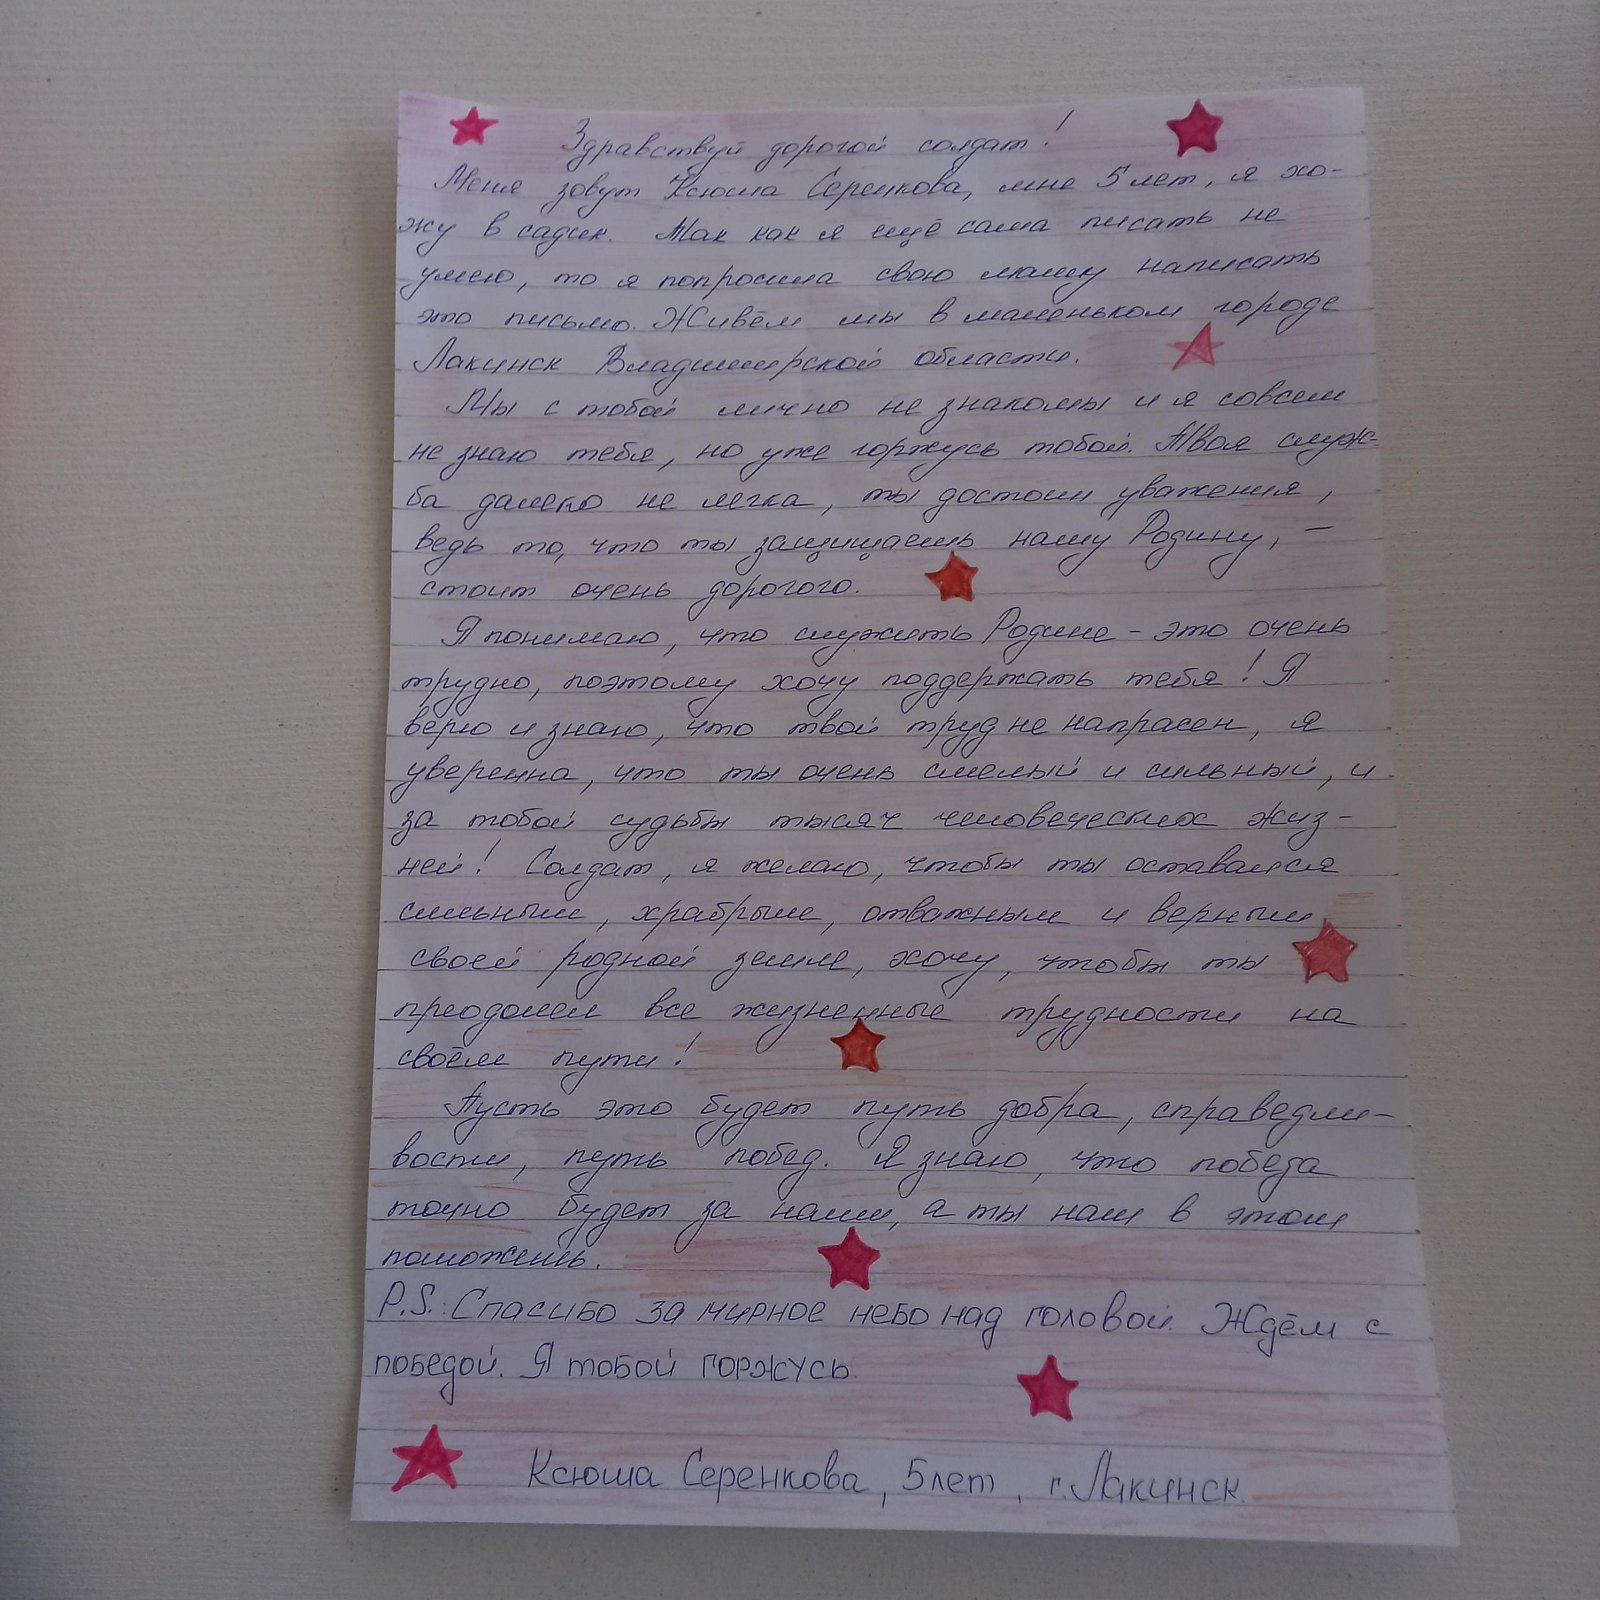 Здравствуй дорогой солдат!
Меня зовут Ксюша Серенкова, мне 5 лет, я хо-
жу в садик. Так как я ещё сама писать не
умею, то я попросила свою маму написать
это письмо. Живём мы в маленьком городе
Лакинск Владимирской области.
Мы с тобой лично не знакомы и я совсем
не знаю тебя, но уже горжусь тобой. Твоя служ-
ба далеко не легка, ты достоин уважения,
ведь то, что ты защищаешь нашу Родину, –
стоит очень дорогого.
Я понимаю, что служить Родине – это очень
трудно, поэтому хочу поддержать тебя! Я
верю и знаю, что твой труд не напрасен, я
уверенна, что ты очень смелый и сильный, и
за тобой судьбы тысяч человеческих жиз-
ней! Солдат, я желаю, чтобы ты оставался
сильным, храбрым, отважным и верным
своей родной земле, хочу, чтобы ты
преодолел все жизненные трудности на
своём пути!
Пусть это будет путь добра, справедли-
вости, путь побед. Я знаю, что победа
точно будет за нами, а ты нам в этом
поможешь.
P.S.: Спасибо за мирное небо над головой. Ждём с
победой. Я тобой горжусь.
Ксюша Серенкова, 5 лет, г. Лакинск.